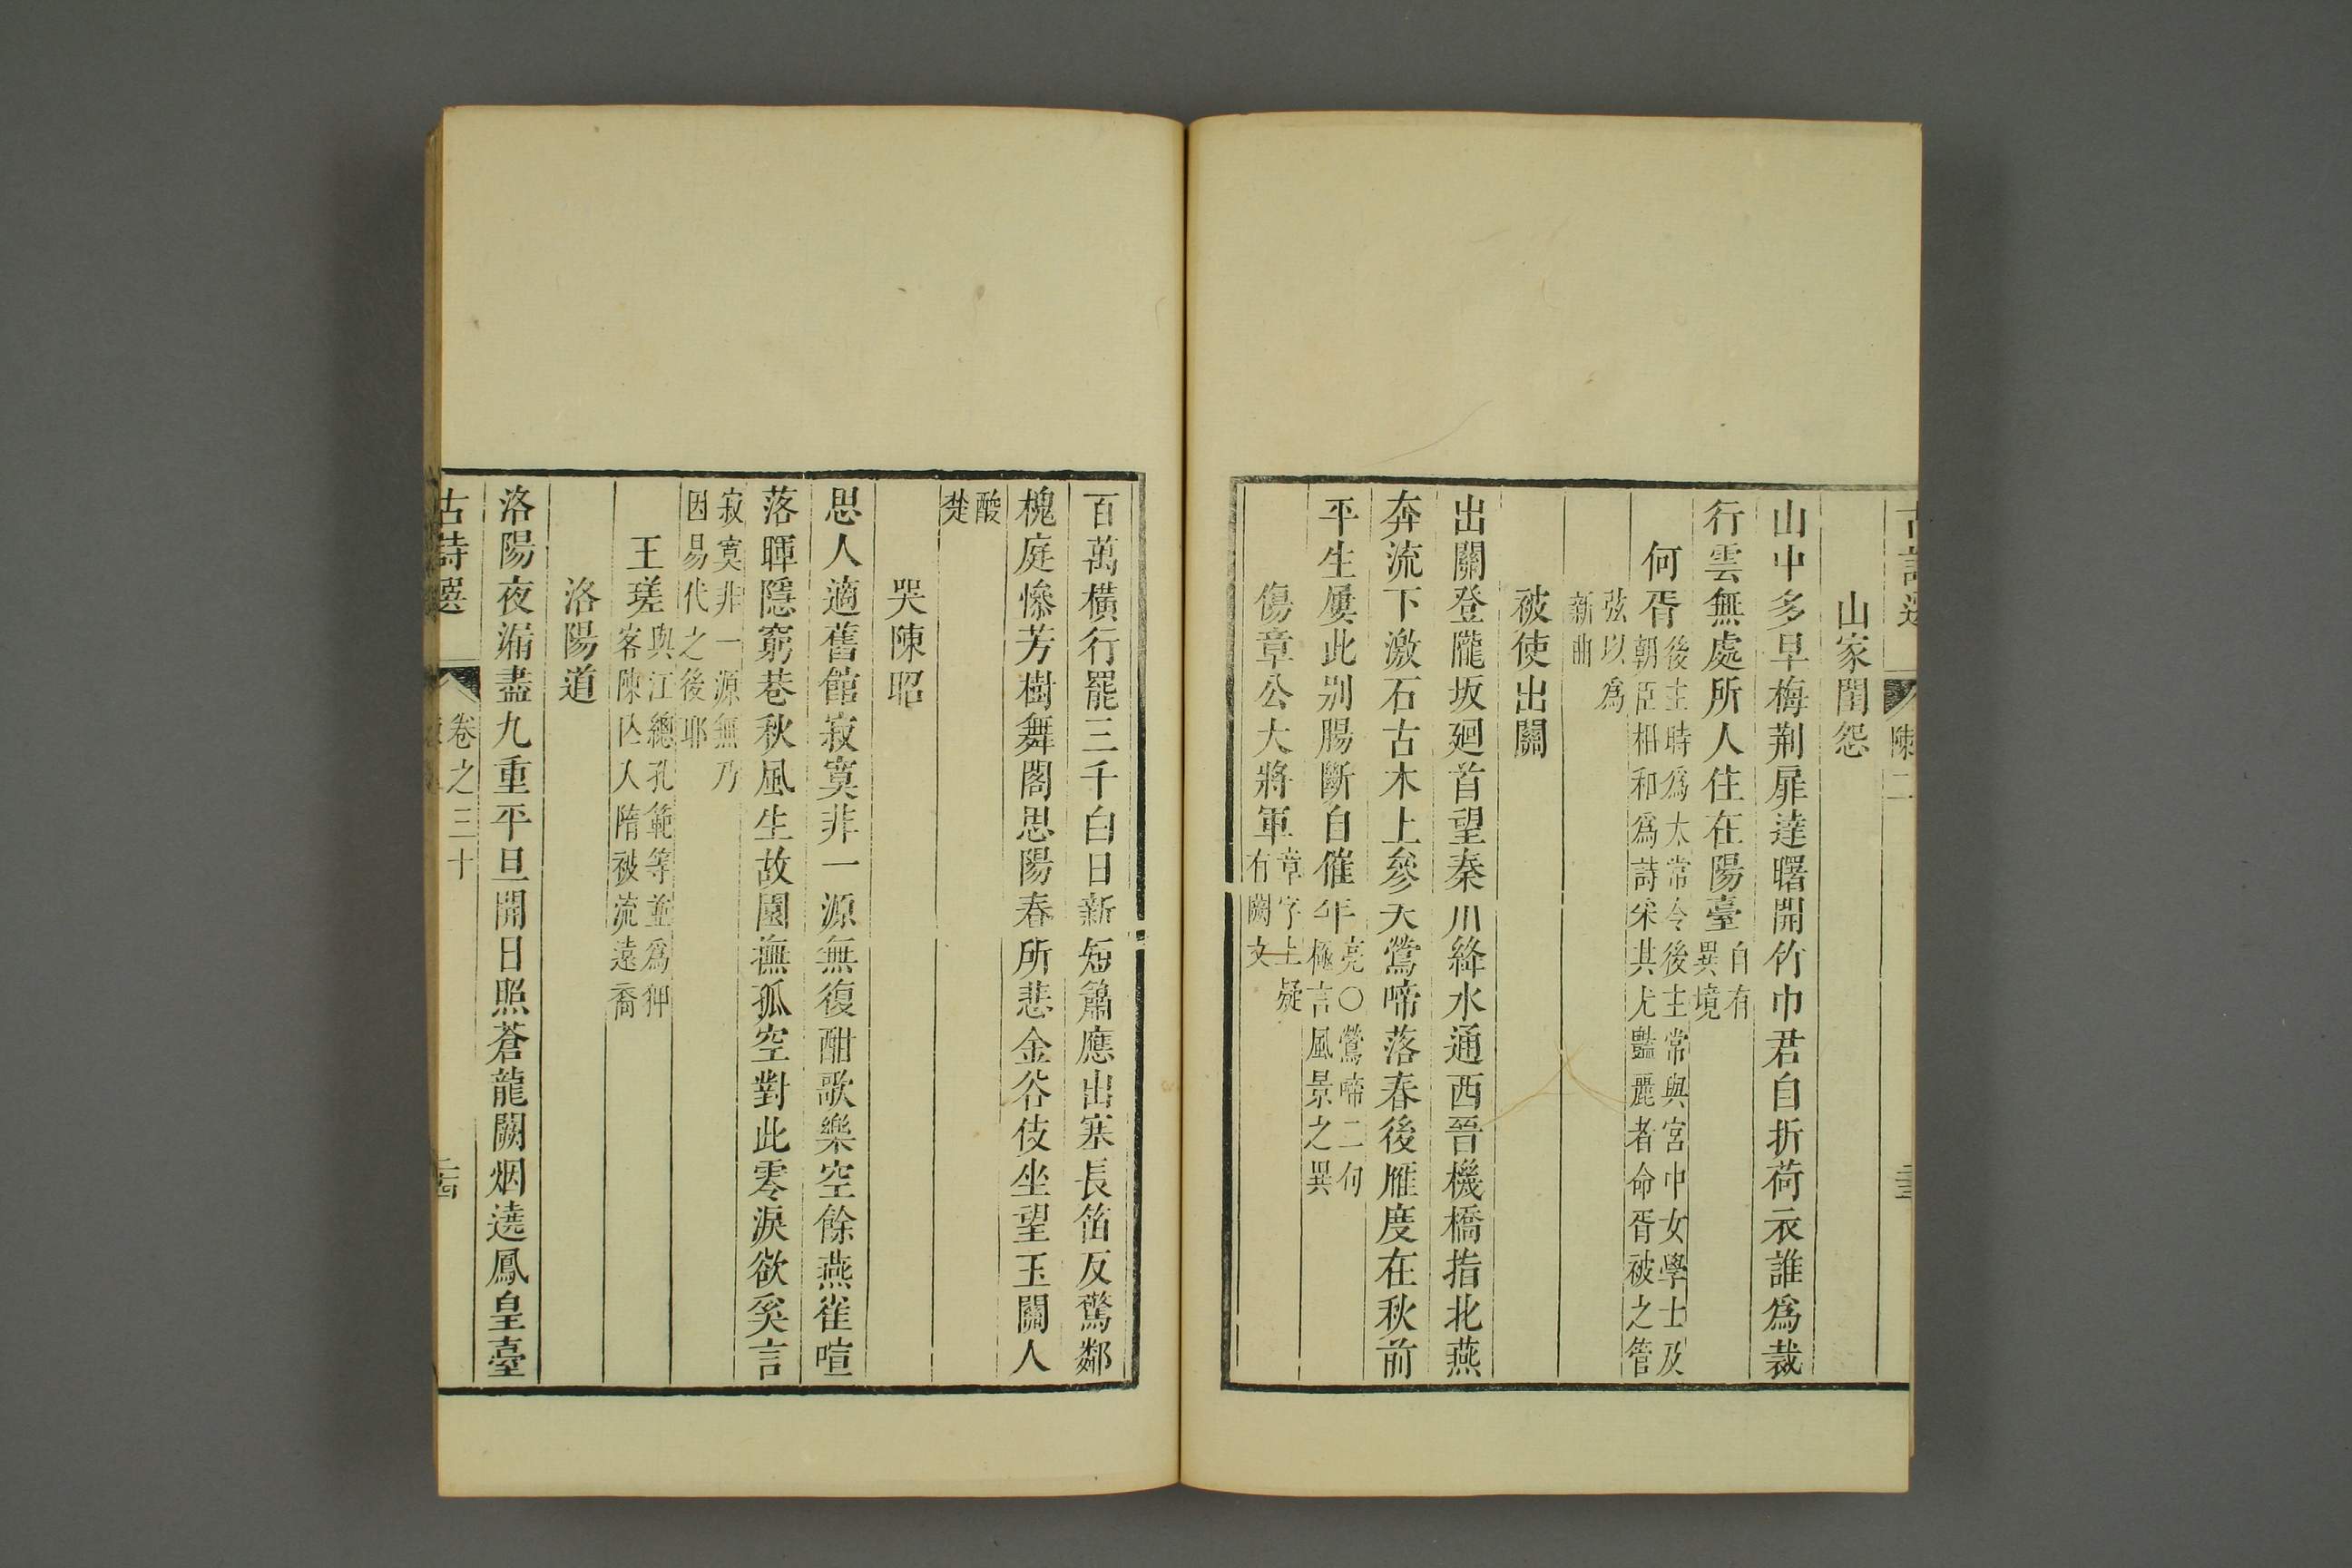 古詩選 陳二 二十三
山家閨怨
山中多早梅荆扉達曙開竹巾君自折荷衣誰爲裁
行雲無處所人住在陽臺自有異境
何胥後主時爲太常令後主常與宮中女學士及朝臣相和爲詩采其尤豔麗者命胥被之管
弦以爲新曲
被使出關
出關登隴坂廻首望秦川絳水通西晉機橋指北燕
奔流下激石古木上參天鶯啼落春後雁度在秋前
平生屢此别腸斷自催年亮○鶯啼二句極言風景之異
傷章公大將軍章字上疑有闕文
百萬横行罷三千白日新短簫應出塞長笛反驚鄰
槐庭慘芳樹舞閣思陽春所悲金谷伎坐望玉關人
酸楚
哭陳昭
思人適舊館寂寞非一源無復酣歌樂空餘燕雀喧
落暉隱窮巷秋風生故園撫孤空對此零淚欲奚言
寂寞非一源無乃因易代之後耶
王瑳與江總孔範等並爲狎客陳亾人隋被流遠裔
洛陽道
洛陽夜漏盡九重平旦開日照蒼龍闕烟遶鳳皇臺
古詩選 卷之三十 二十四